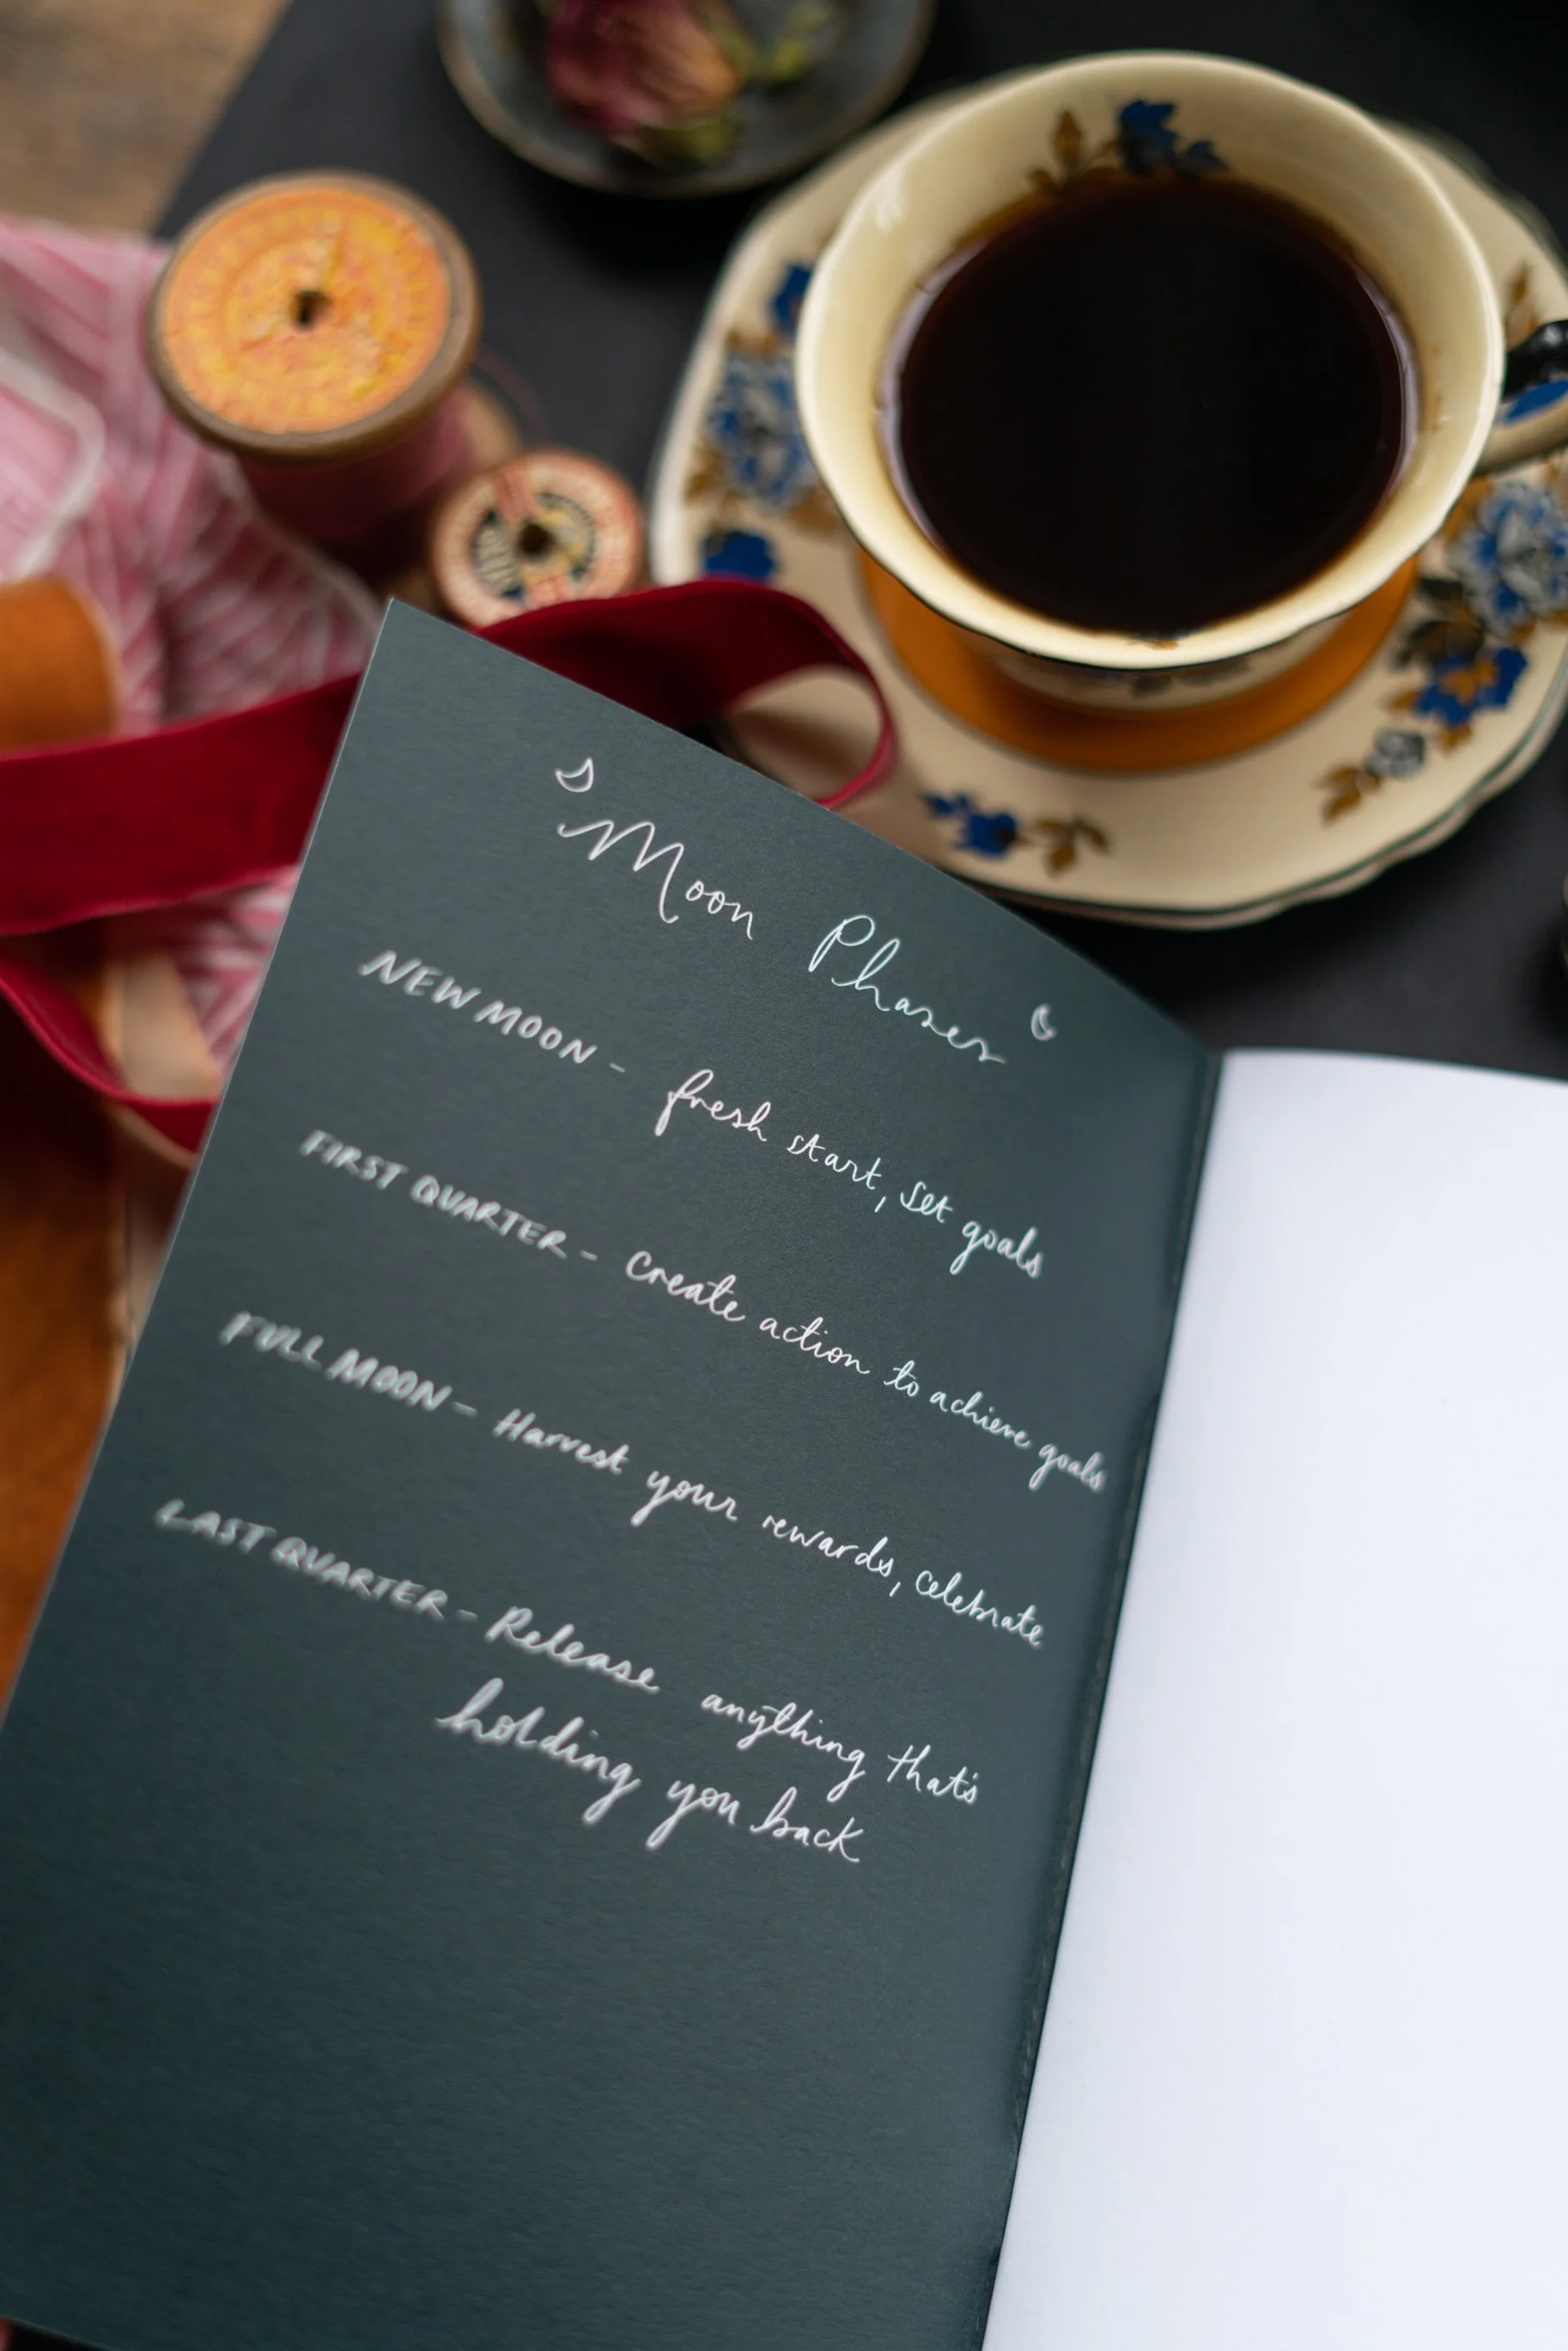 Moon Phases
NEW MOON - fresh start, set goals
FIRST QUARTER - Create action to achieve goals
FULL MOON - Harvest your rewards, celebrate
LAST QUARTER - Release anything that's
holding you back